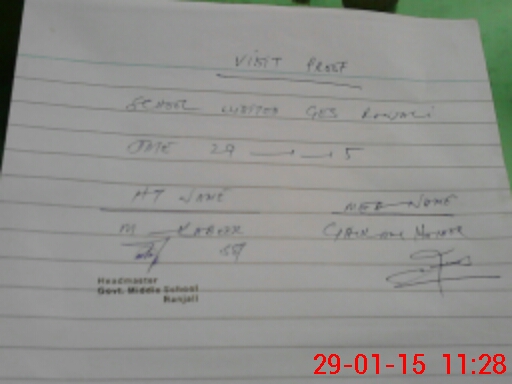 VISIT PROOF
SCHOOL VISITED GES RANJALI
DATE 29 — — 5
HT NAME
MEA NAME
M KABOR
Headmaster
Govt. Middle School
Ranjali
29-01-15 11:28